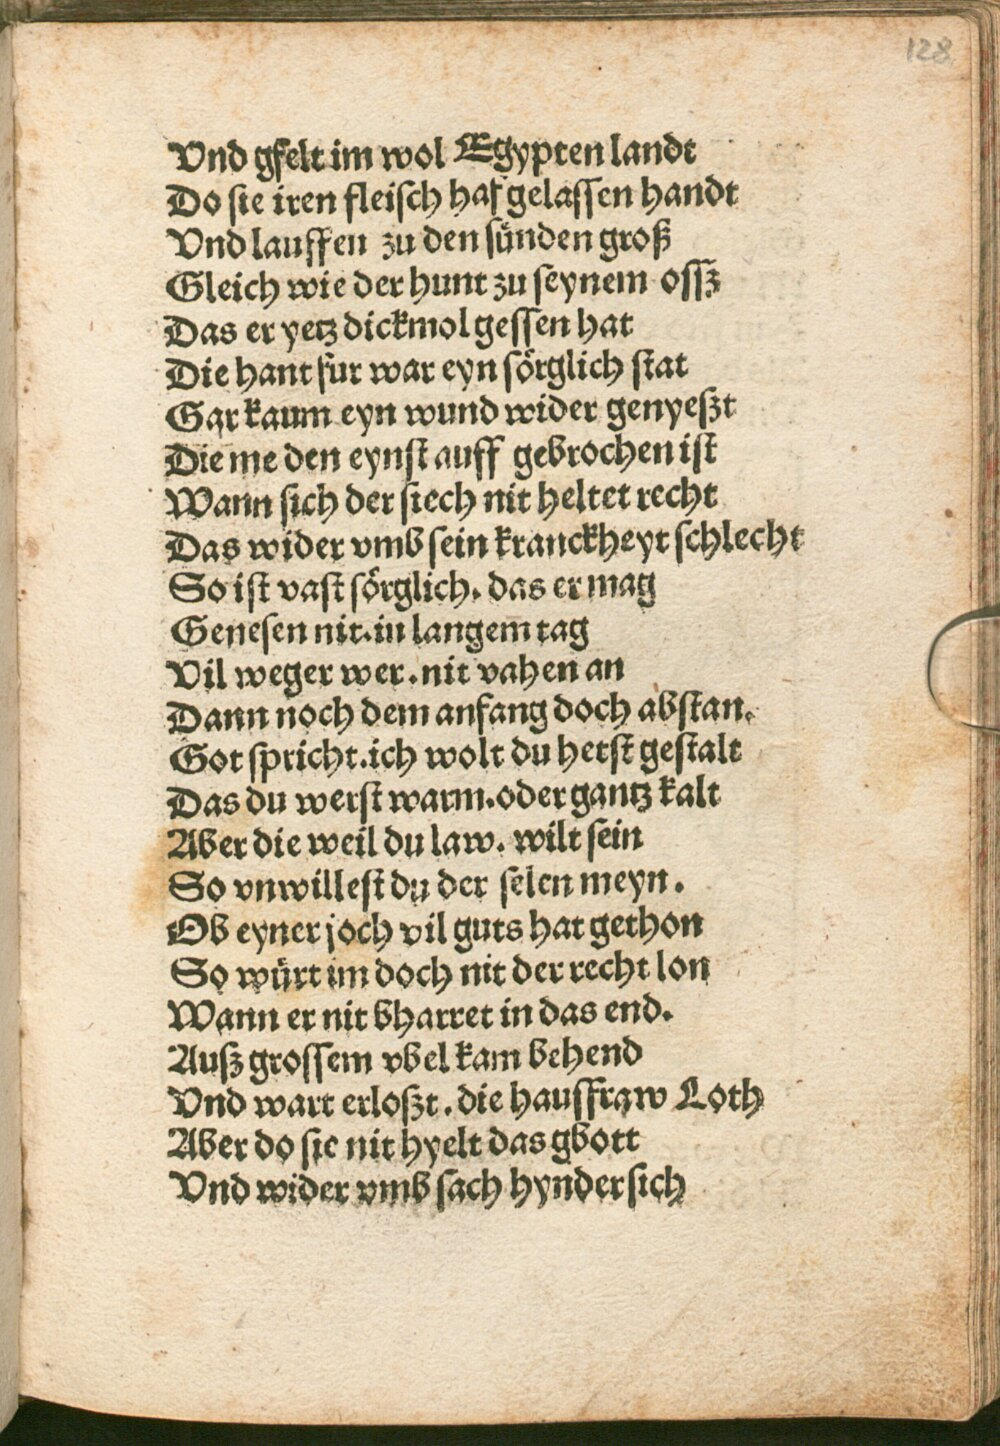 128
Vnd gfelt im wol Egypten landt
Do sie iren fleisch haf gelassen handt
Vnd lauffen zu den sünden groß
Gleich wie der hunt zu seynem ossz
Das er yetz dickmol gessen hat
Die hant fur war eyn sörglich stat
Gar kaum eyn wund wider genyeszt
Die me den eynst auff gebrochen ist
Wann sich der siech nit heltet recht
Das wider vmb sein kranckheyt schlecht
So ist vast sörglich. das er mag
Genesen nit. in langem tag
Vil weger wer. nit vahen an
Dann noch dem anfang doch abstan.
Got spricht. ich wolt du hetst gestalt
Das du werst warm. oder gantz kalt
Aber die weil du law. wilt sein
So vnwillest du der selen meyn.
Ob eyner joch vil guts hat gethon
So würt im doch nit der recht lon
Wann er nit bharret in das end.
Ausz grossem vbel kam behend
Vnd wart erloszt. die hausfraw Loth
Aber do sie nit hyelt das gbott
Vnd wider vmb sach hyndersich